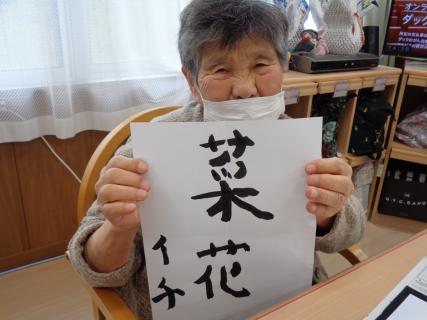 菜花
イチ
オンラ
ダック